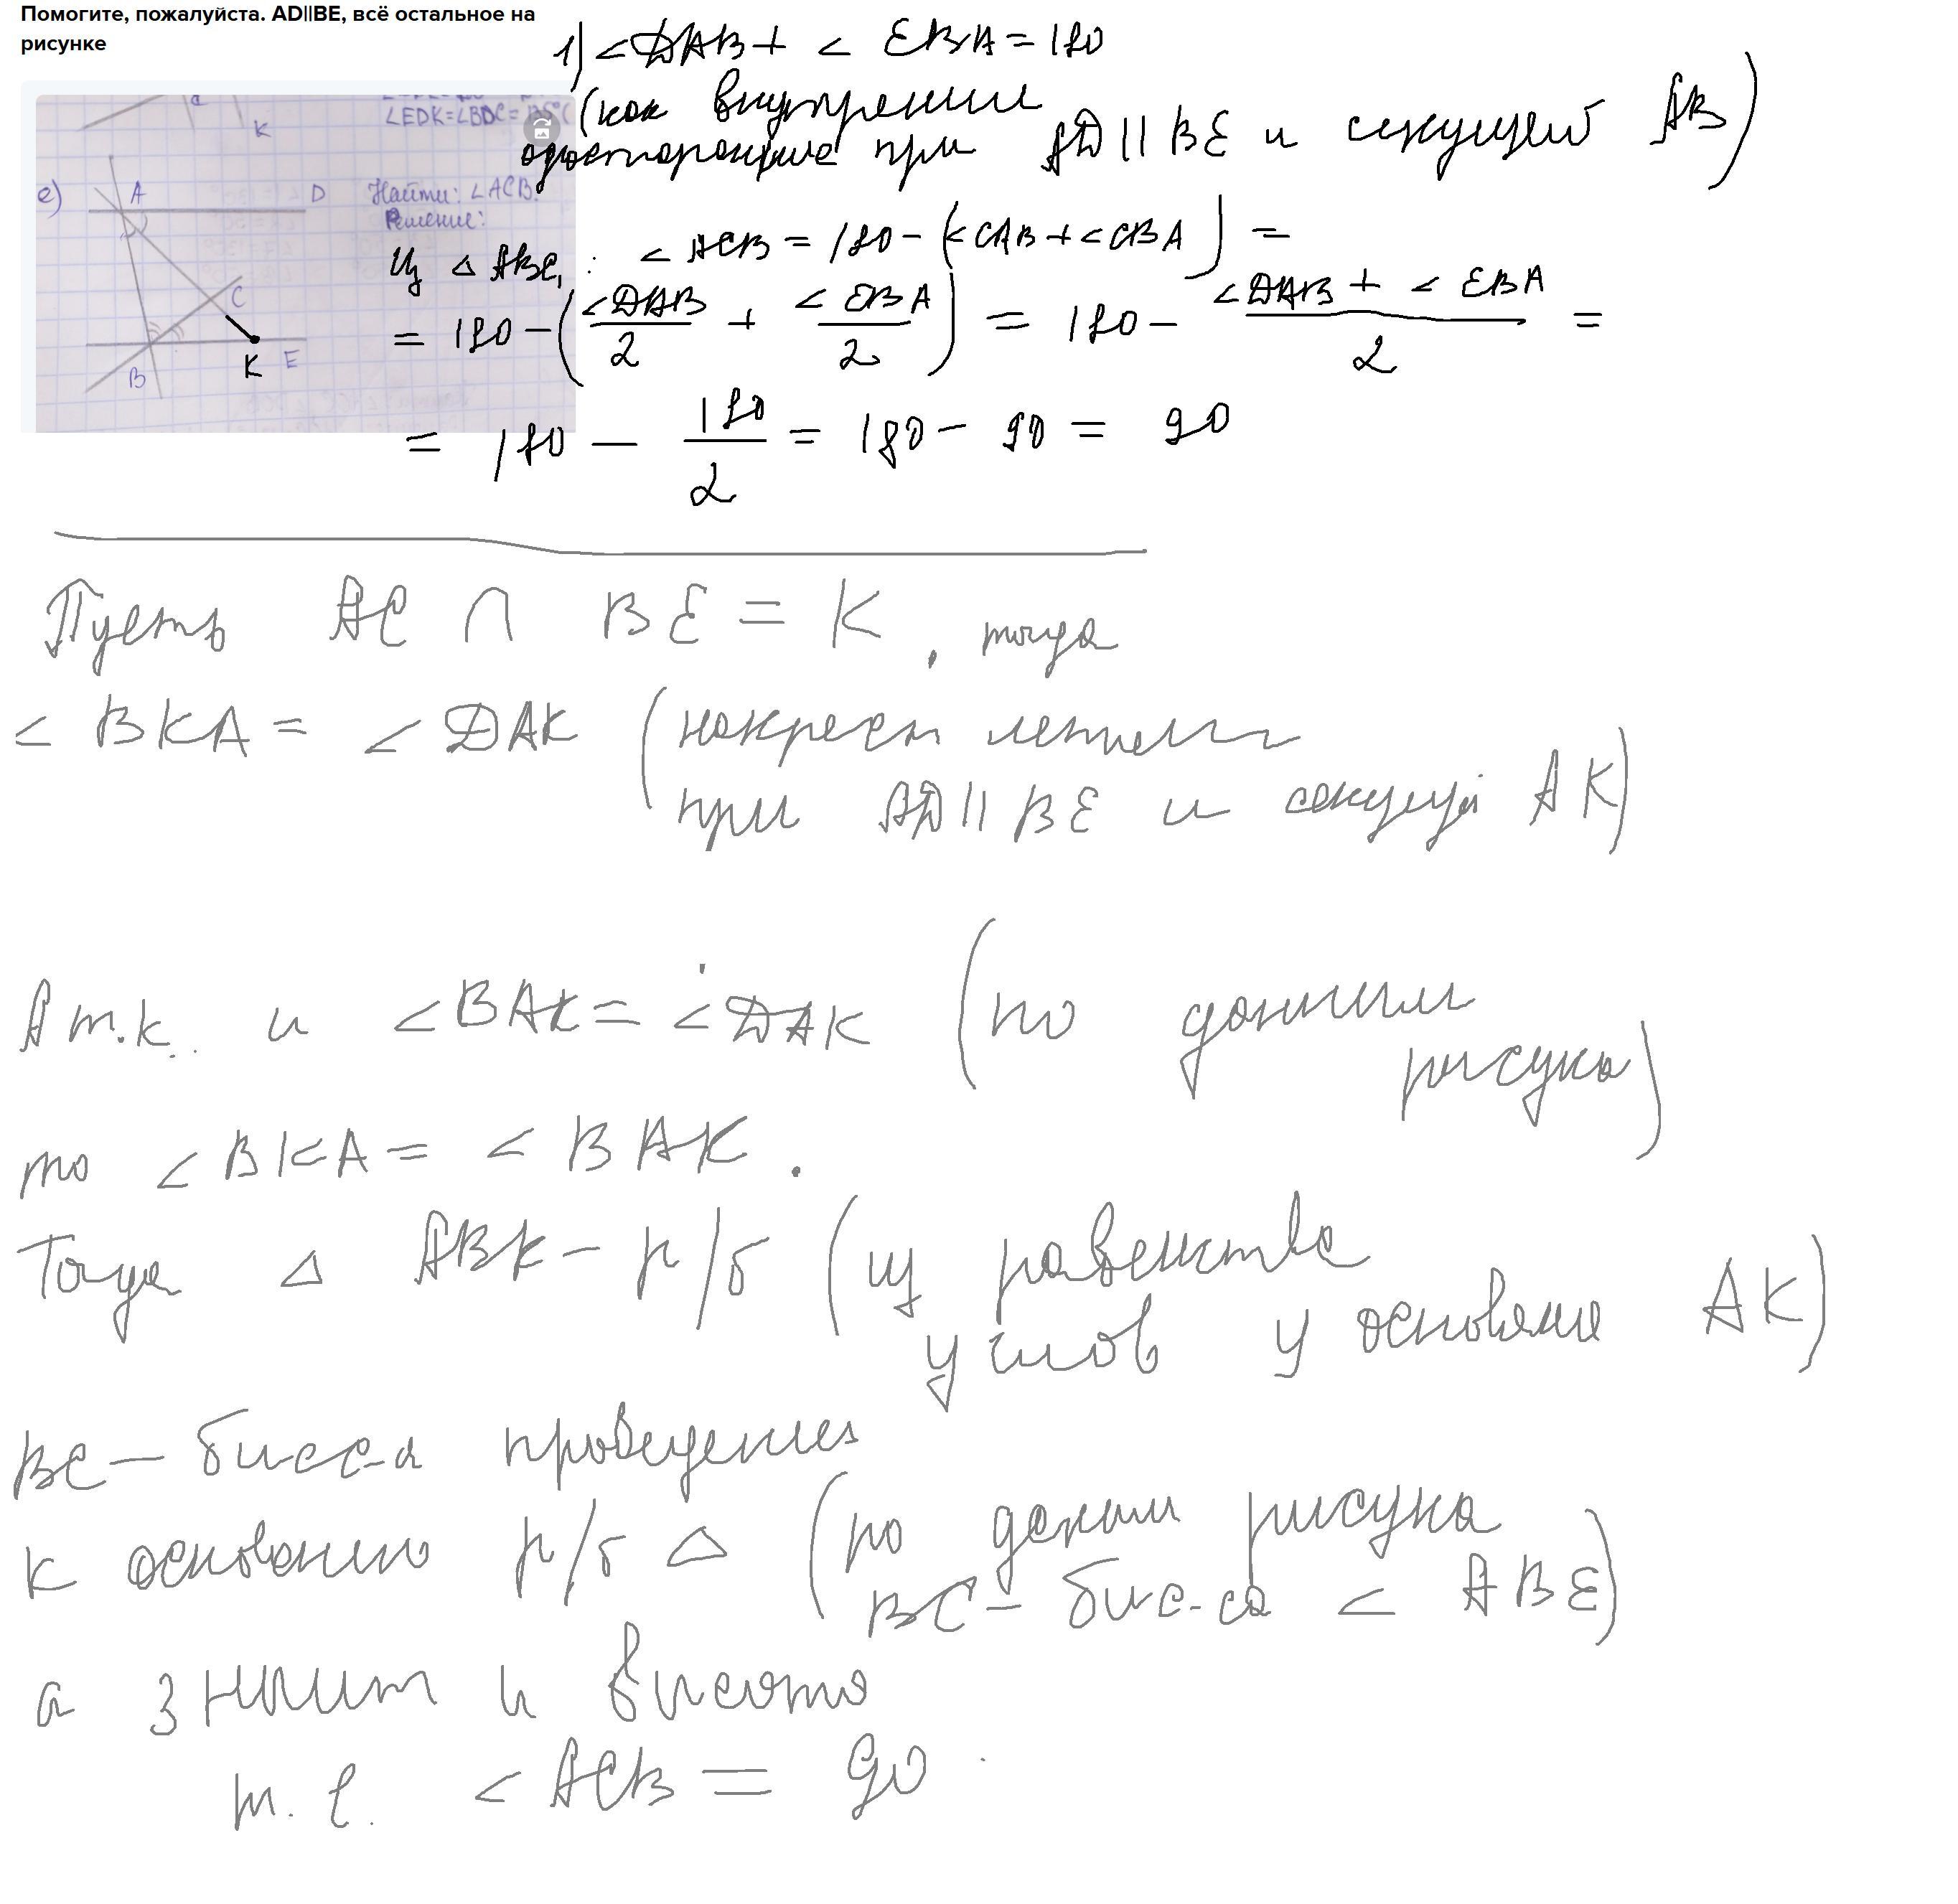 Помогите, пожалуйста. AD||BE, всё остальное на
рисунке
1) <DAB + < EBA = 180
(как внутренние
односторонние при AD || BE и секущей AB)
C
K
∠EDK=∠BDC=
е)
A
D
Найти: ∠ACB.
Решение:
C
B
K
E
Из △ ABC, : < ACB = 180 - (<CAB + <CBA) =
= 180 - (<DAB/2 + < EBA/2) = 180 - (<DAB + < EBA)/2 =
= 180 - 180/2 = 180 - 90 = 90
Пусть AC ∩ BE = K, тогда
< BKA = < DAK (накрест лежащие
при AD || BE и секущей AK)
А т.к. и <BAK = <DAK (по данным
рисунка)
то < BKA = < BAK.
Тогда △ ABK - р/б (из равенства
углов у основания AK)
BC - бисс-а проведенная
к основанию р/б △ (по данным рисунка
BC - бис-са < ABE)
а значит и высота
т.е. < ACB = 90